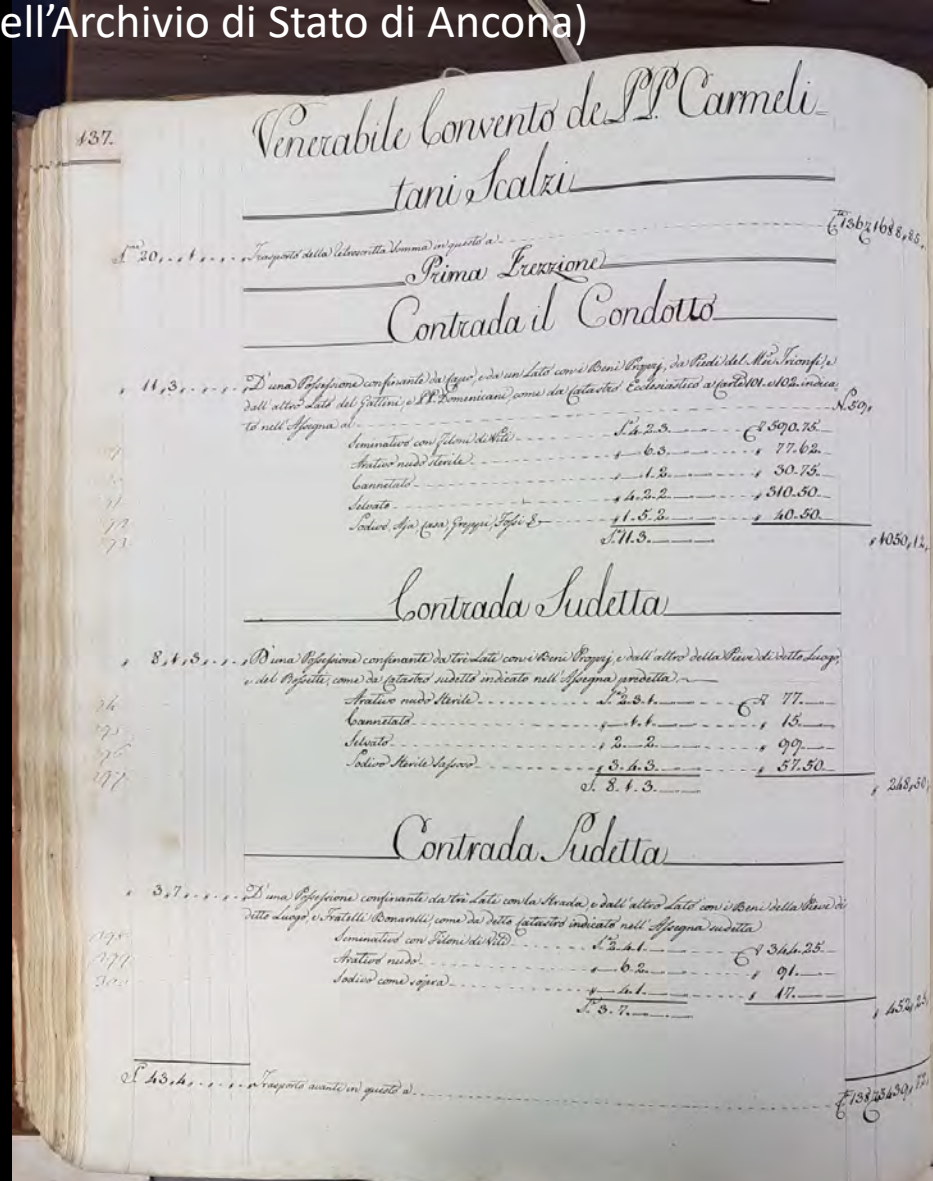 ell'Archivio di Stato di Ancona)
137.
Venerabile Convento de PP. Carmeli-
tani Scalzi
20,,,1,,,, Trasporto della retroscritta Somma in questo a
Prima Frezzione
Contrada il Condotto
11,3,,,, D'una Possessione confinante da Capo, e da un Lato con i Beni Proprj, da Piedi del Trionfi, e
dall'altro Lato del Gattini, e PP. Domenicani, come da Catastro Ecclesiastico a carte 101. e 102. indica-
to nell'Assegna al N. 50,
Seminativo con Filoni di Viti S. 4.2.3. 590.75.
Arativo nudo sterile 6.3. 77.62.
Cannetato 1.2. 30.75.
Selvato 4.2.2. 310.50.
Sodivo, Aja, Casa, Greppi, Fossi & 1.5.2. 40.50.
S. 11.3. 1050,12,
Contrada Sudetta
8,1,3,,,, D'una Possessione confinante da trè Lati con i Beni Proprj, e dall'altro della Pieve di detto Luogo,
e del come da Catastro sudetto indicato nell'Assegna predetta
Arativo nudo Sterile 2.3.1. 77.
Cannetato 1.1. 15.
Selvato 2. 2. 99.
Sodivo Sterile Sassoso 3.4.3. 57.50.
S. 8.1.3. 248,50,
Contrada Sudetta
3,7,,,, D'una Possessione confinante da trè Lati con la Strada, e dall'altro Lato con i Beni della Pieve di
detto Luogo, e Fratelli Bonarelli, come da detto Catastro indicato nell'Assegna sudetta
Seminativo con Filoni di Viti S. 2.4.1. 344.25.
Arativo nudo 6.2. 91.
Sodivo come sopra 4.1. 17.
S. 3.7. 452,25,
S. 43,4,,,, Trasporto avanti in questo a